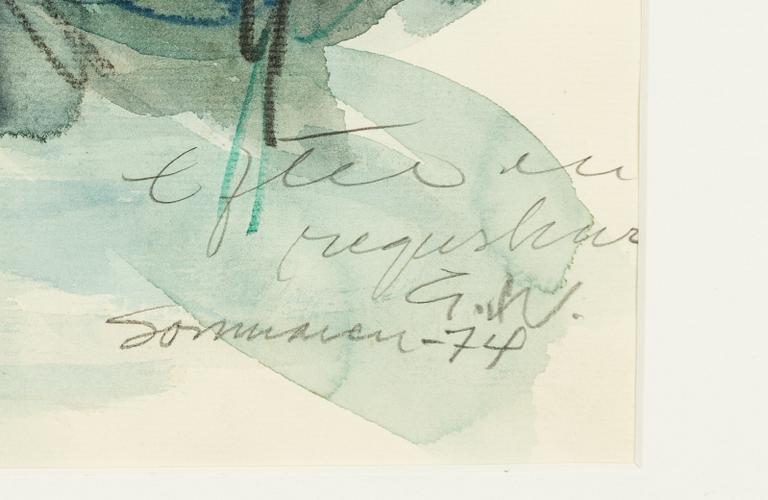 Efter en
regnskur
G.W.
Sommaren-74